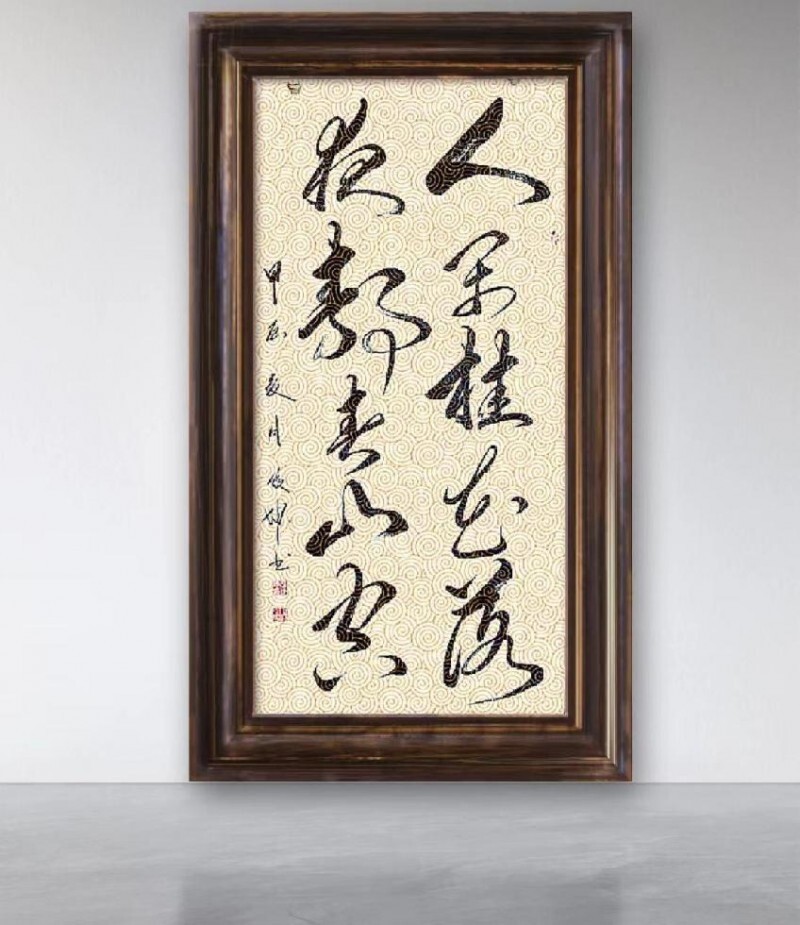 人闲桂花落
夜静春山空
甲辰夏月俊坤书